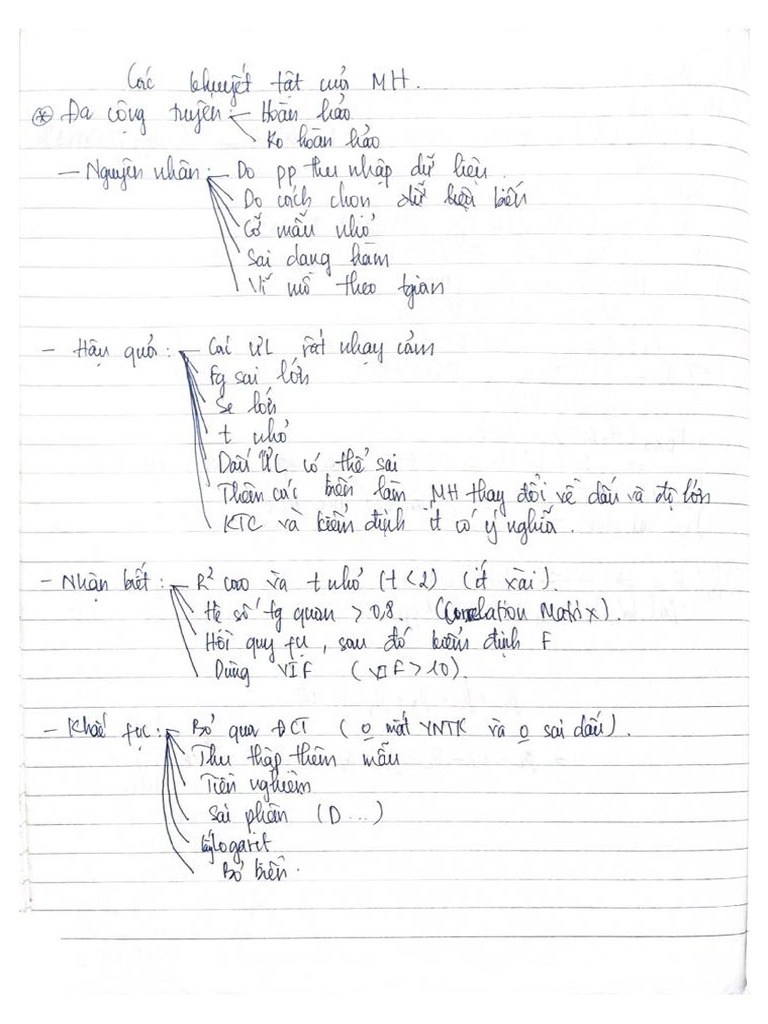 Các khuyết tật của MH.
⊛ Đa cộng tuyến: Hoàn hảo
Ko hoàn hảo
- Nguyên nhân: Do pp thu nhập dữ liệu.
Do cách chọn dữ liệu biến
Cỡ mẫu nhỏ
Sai dạng hàm
Vĩ mô theo tgian
- Hậu quả: Các ƯL rất nhạy cảm
Fg sai lớn
Se lớn
t nhỏ
Dấu ƯL có thể sai
Thêm các biến làm MH thay đổi về dấu và độ lớn
KTC và kiểm định ít có ý nghĩa.
- Nhận biết: R² cao và t nhỏ (t < 2) (ít xài).
Hệ số fg quan > 0,8. (Correlation Matrix).
Hồi quy fụ, sau đó kiểm định F
Dùng VIF (VIF > 10).
- Khắc fục: Bỏ qua ĐCT (o mất YNTK và o sai dấu).
Thu thập thêm mẫu
Tiên nghiệm
Sai phân (D...)
lấy logarit
Bỏ biến.